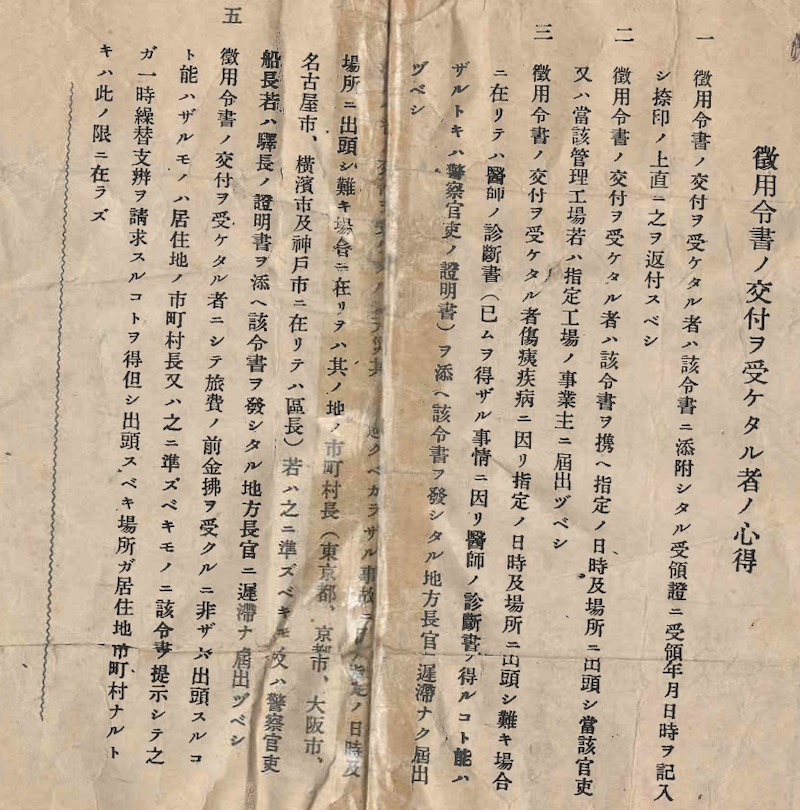 徵用令書ノ交付ヲ受ケタル者ノ心得
一 徵用令書ノ交付ヲ受ケタル者ハ該令書ニ添附シタル受領證ニ受領年月日時ヲ記入
シ捺印ノ上直ニ之ヲ返付スベシ
二 徵用令書ノ交付ヲ受ケタル者ハ該令書ヲ携ヘ指定ノ日時及場所ニ出頭シ當該官吏
又ハ當該管理工場若ハ指定工場ノ事業主ニ屆出ヅベシ
三 徵用令書ノ交付ヲ受ケタル者傷痍疾病ニ因リ指定ノ日時及場所ニ出頭シ難キ場合
ニ在リテハ醫師ノ診斷書(已ムヲ得ザル事情ニ因リ醫師ノ診斷書ヲ得ルコト能ハ
ザルトキハ警察官吏ノ證明書)ヲ添ヘ該令書ヲ發シタル地方長官ニ遲滯ナク屆出
ヅベシ
交付ヲ ベカラザル事故ニ ノ日時及
場所ニ出頭シ難キ場合ニ在リテハ其ノ地ノ市町村長(東京都、京都市、大阪市、
名古屋市、橫濱市及神戶市ニ在リテハ區長)若ハ之ニ準ズベキモノ又ハ警察官吏
船長若ハ驛長ノ證明書ヲ添ヘ該令書ヲ發シタル地方長官ニ遲滯ナ 屆出ヅベシ
五 徵用令書ノ交付ヲ受ケタル者ニシテ旅費ノ前金拂ヲ受クルニ非ザレバ出頭スルコ
ト能ハザルモノハ居住地ノ市町村長又ハ之ニ準ズベキモノニ該令書ヲ提示シテ之
ガ一時繰替支辨ヲ請求スルコトヲ得但シ出頭スベキ場所ガ居住地市町村ナルト
キハ此ノ限ニ在ラズ